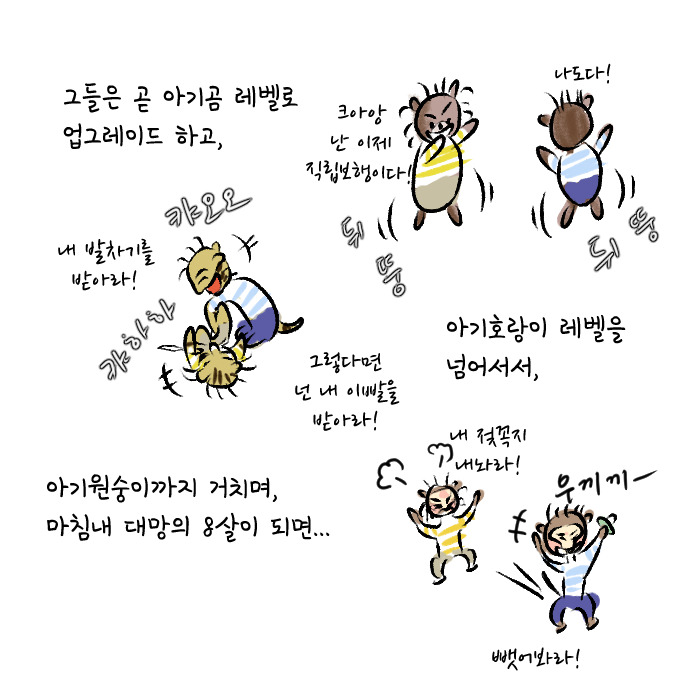 그들은 곧 아기곰 레벨로
업그레이드 하고,
크아앙
난 이제
직립보행이다!
나도다!
뒤뚱
뒤뚱
캬오오
내 발차기를
받아라!
캬하하
그렇다면
넌 내 이빨을
받아라!
아기호랑이 레벨을
넘어서서,
아기원숭이까지 거치며,
마침내 대망의 8살이 되면...
내 젖꼭지
내놔라!
우끼끼-
뺏어봐라!